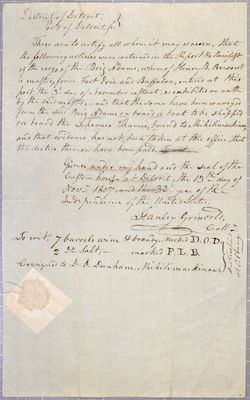 District of Detroit,
Port of Detroit, ss.
These are to certify all whom it may concern, that
the following articles were entered in the Report & Manifest
of the cargo of the Brig Adams, whereof Henry B. Brevoort
is master, from Fort Erie and Buffaloe, entered at this
port the 3d day of November instant, as exhibited on oath
by the said master,—and that the same have been
from the said Brig Adams on board a boat to be shipped
on board the Schooner Thames, bound to Michilimackinac
and that evidence has not been taken at this office that
the duties thereon have been paid.
Given under my hand and the seal of the
Custom house at Detroit, the 13th day of
Novr. 1807, and 32 year of the
Independence of the United States.
Stanley Griswold,
Collr.
To wit, 7 barrels wine & brandy marked D.O.D.
2 Do Salt, marked F.L.B.
Consigned to D. O. Dunham, Michilimackinac